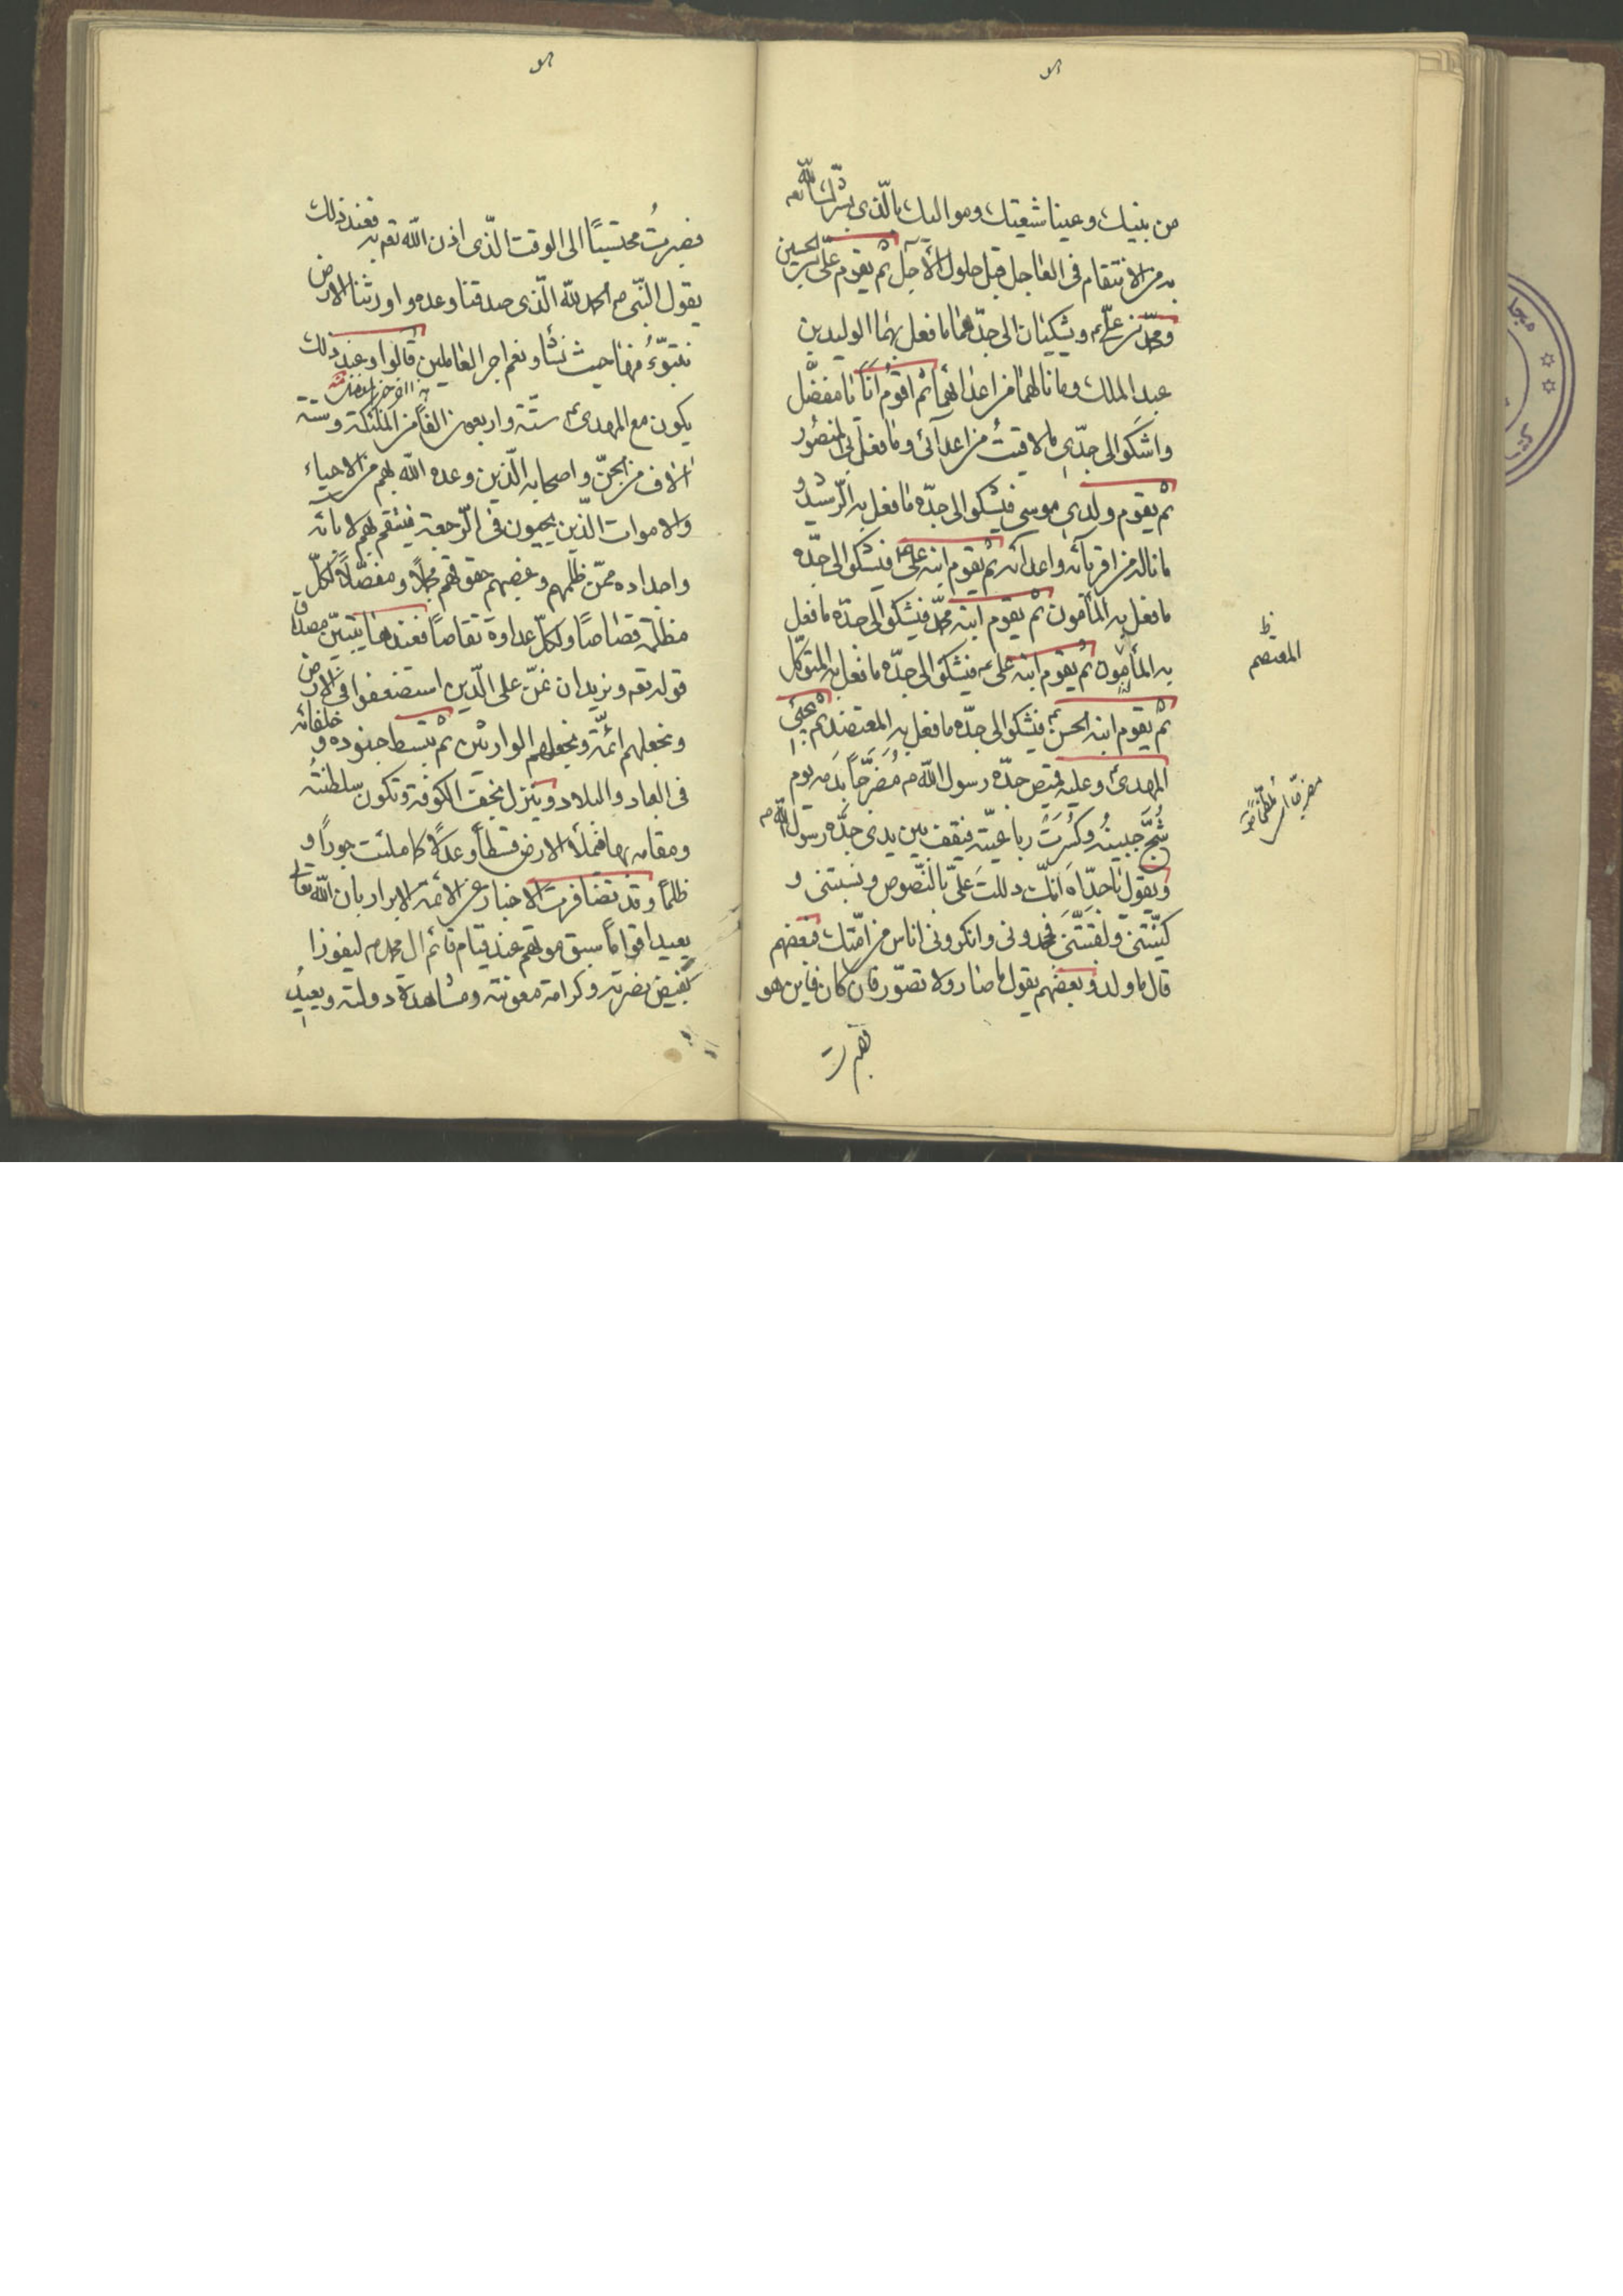 من بنيك وعينا شيعتك ومواليك بالّذى بشّرك اللّه تعه
به من الانتقام فى العاجل قبل حلول الآجل ثم يقوم علىّ بن الحسين
ومحمّد بن علىّ ع ويشكيان الى جدّهما ما فعل بهما الوليد بن
عبد الملك وما نالهما من اعدائهما ثم اقوم انا يا مفضّل
واشكو الى جدّى ما لاقيت من اعدآئى وما فعل بى المنصور
ثم يقوم ولدى موسى فيشكو الى جدّه ما فعل به الرّشيد و
ما ناله من اقربآئه واعدائه ثم يقوم ابنه على فيشكو الى جدّه
ما فعل به المأمون ثم يقوم ابنه محمّد فيشكو الى جدّه ما فعل
به المأمون ثم يقوم ابنه على ع فيشكو الى جدّه ما فعل به المتوكّل
المعتصم
ثم يقوم ابنه الحسن ع فيشكو الى جدّه ما فعل به المعتضد ثم يجيئ
المهدى وعليه قميص جدّه رسول اللّه ص مُضَرَّجاً بدمه يوم
شُجَّ جَبينُه وكُسِرَتْ رباعيّته فيقف بين يدى جدّه رسول اللّه ص
ويقول يا جدّاه انّك دللت علىّ بالنّصوص ونسبتنى و
كنّيتنى ولقّبتنى فجحدونى وانكرونى اناس من امّتك فبعضهم
قال ما ولد وبعضهم يقول ما صار ولا تصوّر فان كان فاين هو
فصبرت
فصبرتُ محتسبًا الى الوقت الّذى اذن اللّه تعه به فعند ذلك
يقول النّبى ص الحمد للّه الّذى صدقنا وعده واورثنا الارض
نتبوّءُ منها حيث نشآء ونعم اجر العاملين قالوا وعند ذلك
يكون مع المهدى ع ستّة واربعون الفاً من الملئكة وستة
الاف من الجنّ واصحابه الّذين وعده اللّه بهم من الاحياء
والاموات الّذين يحيون فى الرّجعة فينتقم بهم لابائه
واجداده ممّن ظلمهم وغصبهم حقوقهم مجملاً ومفصّلاً لكلّ
مظلمة قصاصًا ولكلّ عداوة تقاصاً فعندها يتبيّن مصداق
قوله تعه ونريد ان نمنّ على الّذين استضعفوا فى الارض
ونجعلهم ائمّة ونجعلهم الوارثين ثم يبسط جنوده و خلفائه
فى العباد والبلاد وينزل نجف الكوفة وتكون سلطنتُه
ومقامه بها فيملأ الارض قسطاً وعدلاً كما ملئت جورًا و
ظلمًا وقد تضافرت الاخبار عن الائمّة الابرار بان اللّه تعالى
يعيد اقواماً سبق موتهم عند قيام قائم ال محمد ص ليفوزا
بفيض نصرته وكرامة معونته ومشاهدة دولته ويعيدُ